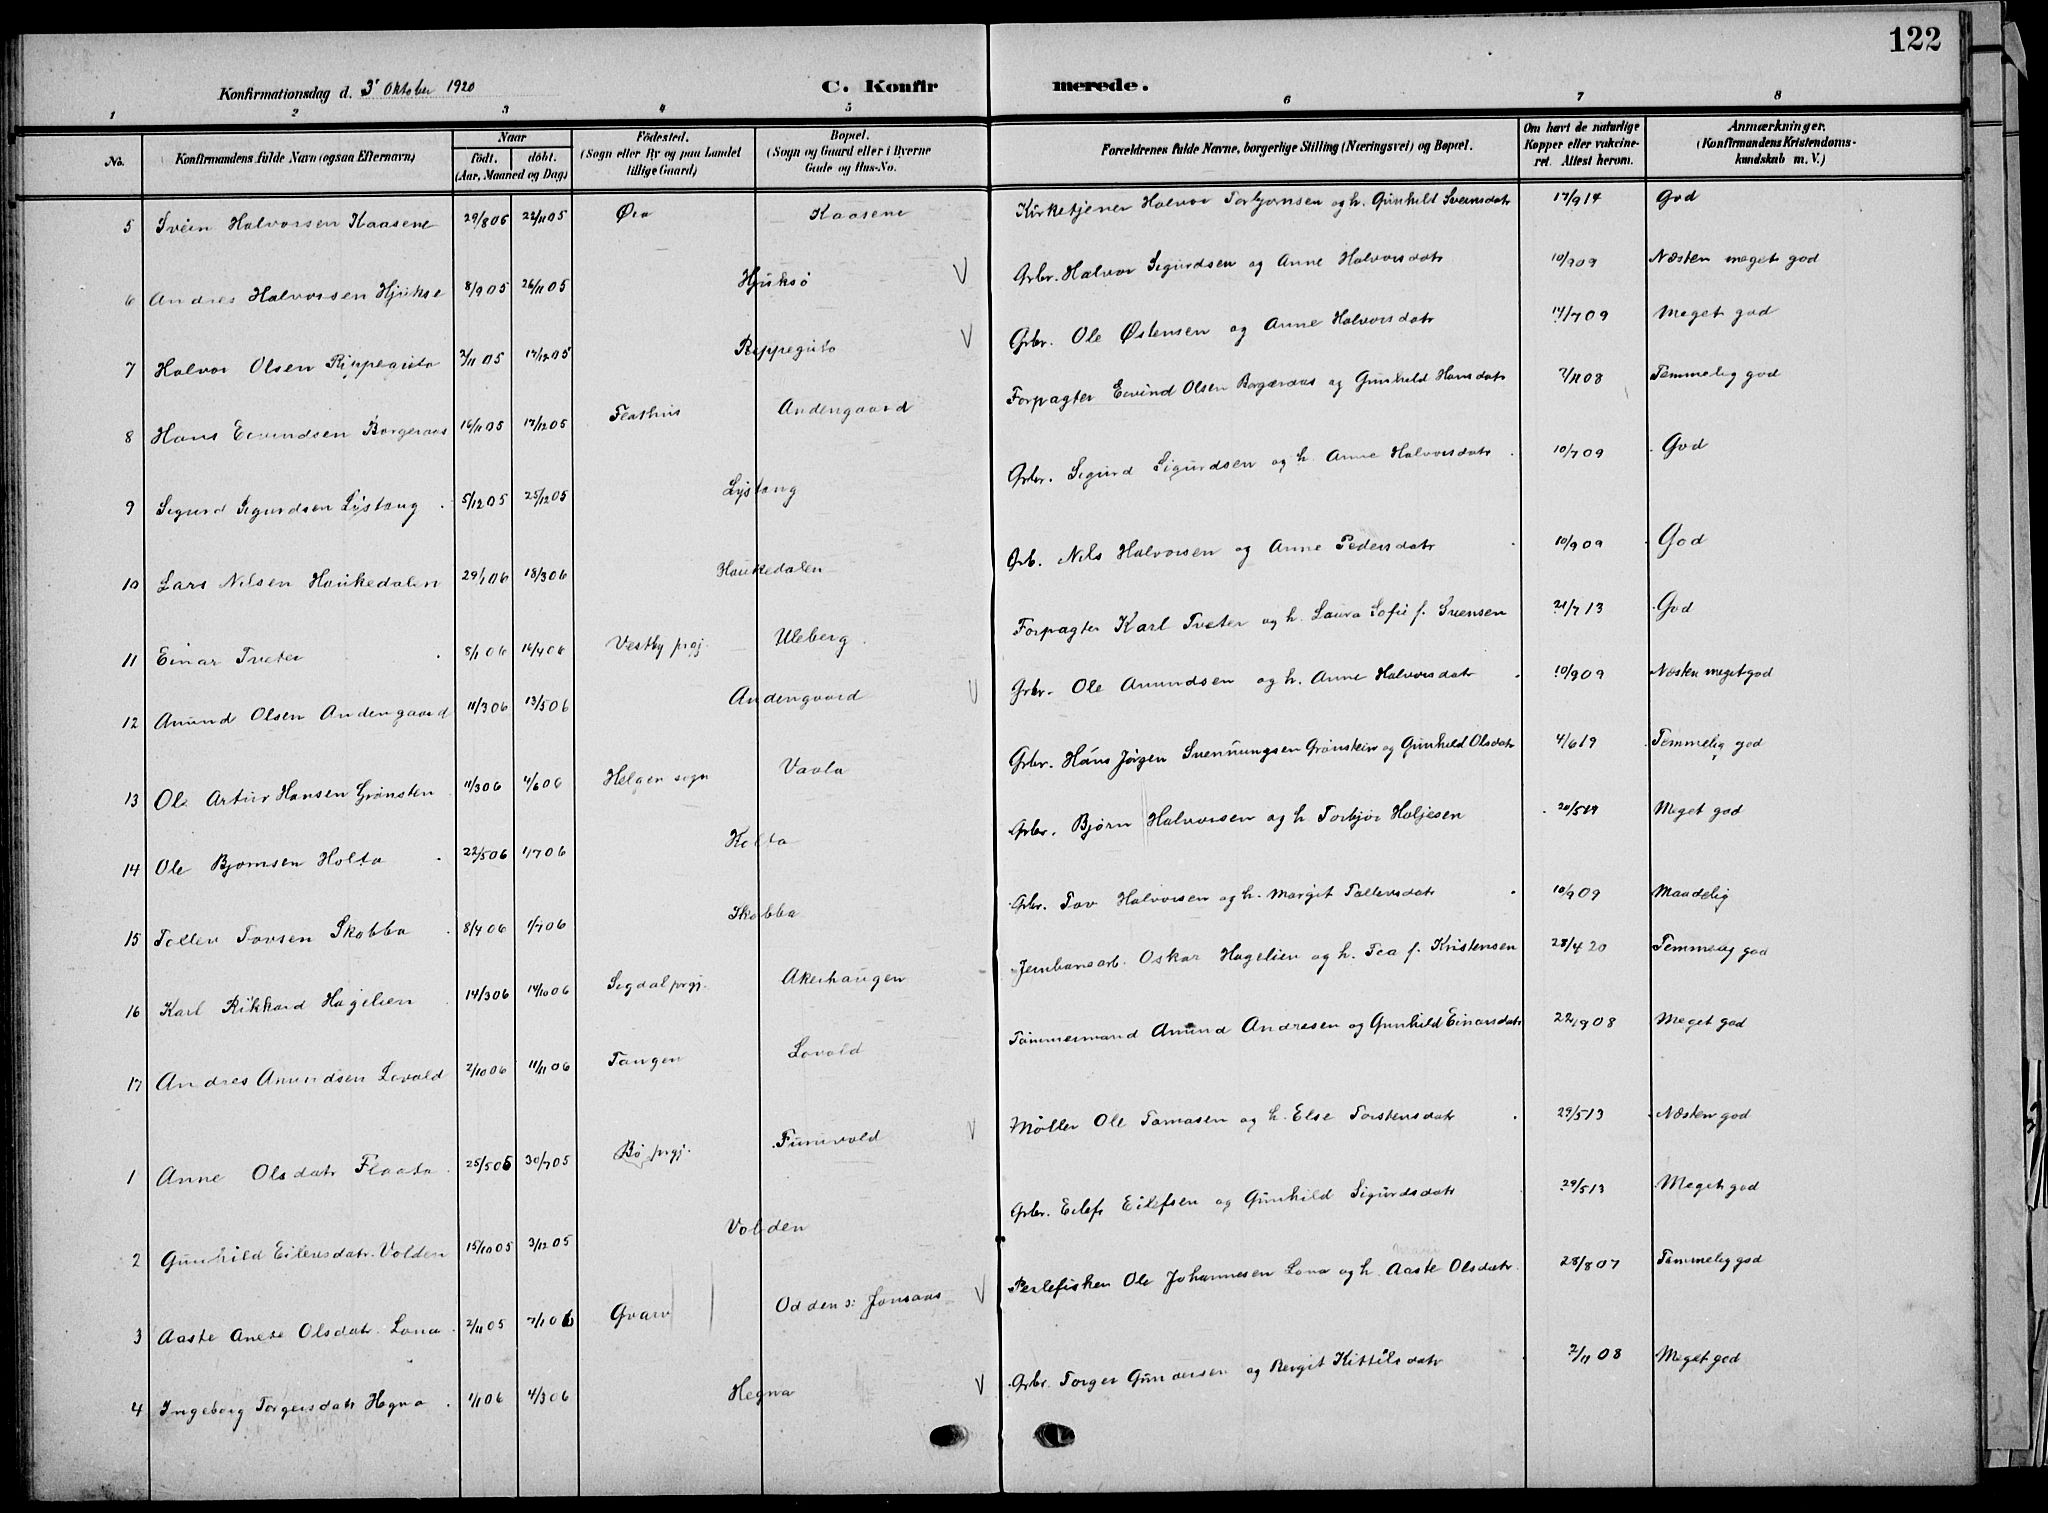 122
Konfirmationsdag d. 3' Oktober 1920 C. Konfir merede.
1 2 3 4 5 6 7 8
No. Konfirmandens fulde Navn (ogsaa Efternavn) Naar födt. döbt. (Aar, Maaned og Dag) Födested. (Sogn eller By og paa Landet tillige Gaard) Bopæl. (Sogn og Gaard eller i Byerne Gade og Hus-No. Forældrenes fulde Navne, borgerlige Stilling (Næringsvei) og Bopæl. Om havt de naturlige Kopper eller vakcineret. Attest herom. Anmærkninger. (Konfirmandens Kristendomskundskab m. V.)
5 Svein Halvorsen Kaasene 29/8 05 22/11 05 Øia Kaasene Kirketjener Halvor Torbjørnsen og h. Gunhild Sveinsdatr 17/9 14 God
6 Andres Halvorsen Hjukse 8/9 05 26/11 05 Hjuksø V Grbr. Halvor Sigurdsen og Anne Halvorsdatr 10/9 09 Næsten meget god
7 Halvor Olsen Rippeguta 2/11 05 17/12 05 Rippeguta V Grbr. Ole Østensen og Anne Halvorsdatr 14/7 09 Meget god
8 Hans Eivindsen Borgeraas 16/11 05 17/12 05 Flathus Andengaard Forpagter Eivind Olsen Borgeraas og Gunhild Hansdatr 7/11 08 Temmelig god
9 Sigurd Sigurdsen Lystang 5/12 05 25/12 05 Lystang Grbr. Sigurd Sigurdsen og h. Anne Halvorsdatr 10/7 09 God
10 Lars Nilsen Haukedalen 29/1 06 18/3 06 Haukedalen Grb. Nils Halvorsen og Anne Pedersdatr 10/9 09 God
11 Einar Tveter 8/1 06 16/4 06 Vestby prgj. Uleberg Forpagter Karl Tveter og h. Laura Sofie f. Svensen 21/7 13 God
12 Anund Olsen Andengaard 11/3 06 13/5 06 Andengaard V Grbr. Ole Anundsen og h. Anne Halvorsdatr 10/9 09 Næsten meget god
13 Ole Artur Hansen Grønsten 11/3 06 4/6 06 Helgen sogn Vaala Grbr. Hans Jørgen Svennungsen Grønstein og Gunhild Olsdatr 4/6 19 Temmelig god
14 Ole Bjørnsen Holta 22/5 06 1/7 06 Holta Grbr. Bjørn Halvorsen og h Torbjør Holjesen 20/5 19 Meget god
15 Tollev Tovsen Skobba 8/4 06 1/7 06 Skobba Grbr. Tov Halvorsen og h. Margit Tollevsdatr 10/9 09 Maadelig
16 Karl Rikkard Hagelien 14/3 06 14/10 06 Sigdal prgj. Akerhaugen Jernbanearb. Oskar Hagelien og h. Tea f. Kristensen 28/4 20 Temmelig god
17 Andres Anundsen Lovald 2/10 06 11/11 06 Tangen Lovald Tømmermand Anund Andresen og Gunhild Einarsdatr 22/9 08 Meget god
1 Anne Olsdatr Flaata 25/5 05 30/7 05 Bø prgj. Furuvold V Møller Ole Tomasen og h. Else Torstensdatr 29/5 13 Næsten god
2 Gunhild Eilevsdatr Volden 15/10 05 3/12 05 Volden Grbr. Eilef Eilefsen og Gunhild Sigurdsdatr 29/5 13 Meget god
3 Aaste Anete Olsdatr Lona 2/11 05 7/1 06 Gvarv Odden s: Jonsaas V Perlefisker Ole Johannesen Lona og h. Aaste Olsdatr 28/8 07 Temmelig god
4 Ingeborg Torgersdatr Hegna 1/1 06 4/3 06 Hegna V Grbr. Torger Gundersen og Bergit Kittilsdatr 7/11 08 Meget god